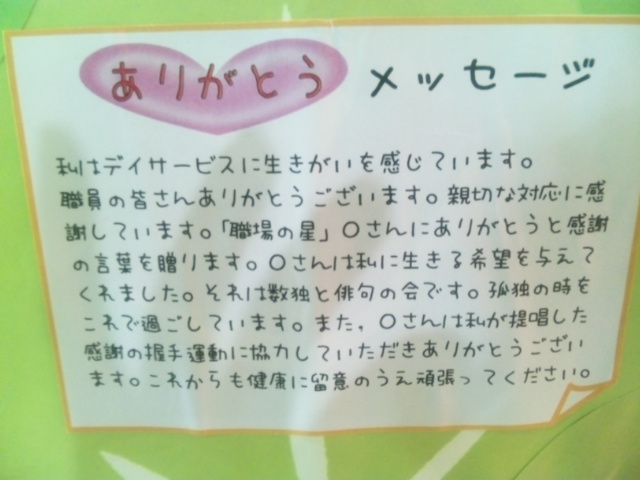 ありがとう メッセージ
私はデイサービスに生きがいを感じています。
職員の皆さんありがとうございます。親切な対応に感
謝しています。「職場の星」〇さんにありがとうと感謝
の言葉を贈ります。〇さんは私に生きる希望を与えて
くれました。それは数独と俳句の会です。孤独の時を
これで過ごしています。また,〇さんは私が提唱した
感謝の握手運動に協力していただきありがとうござい
ます。これからも健康に留意のうえ頑張ってください。